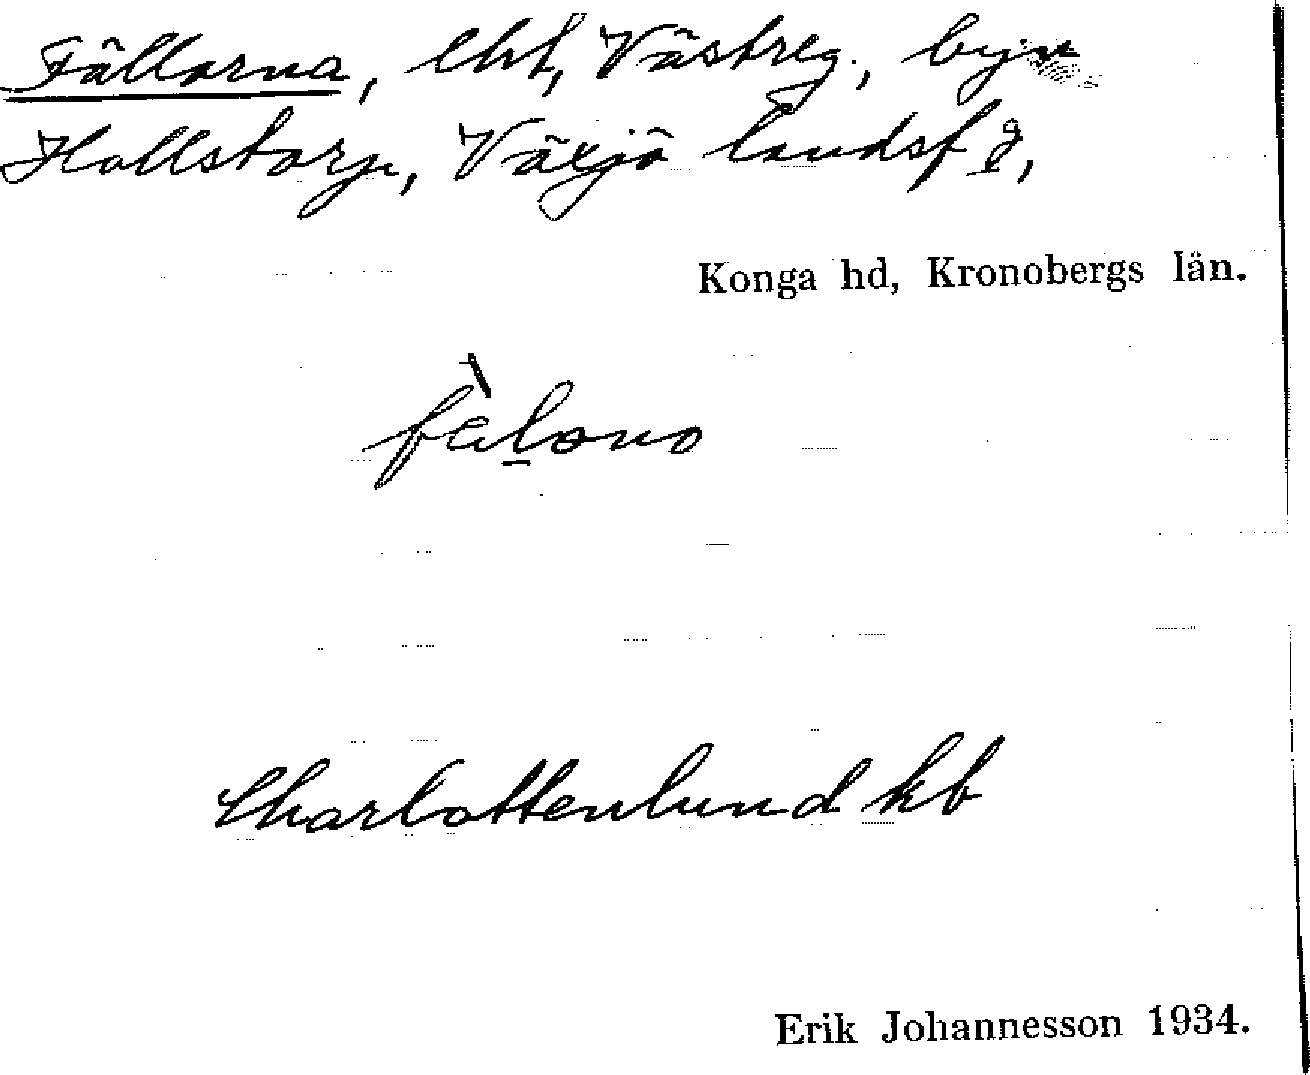 Fällorna, lht, Västreg., byn
Hollstorp, Växjö landsf g,
Konga hd, Kronobergs län.
fàlono
Charlottenlund kb
Erik Johannesson 1934.